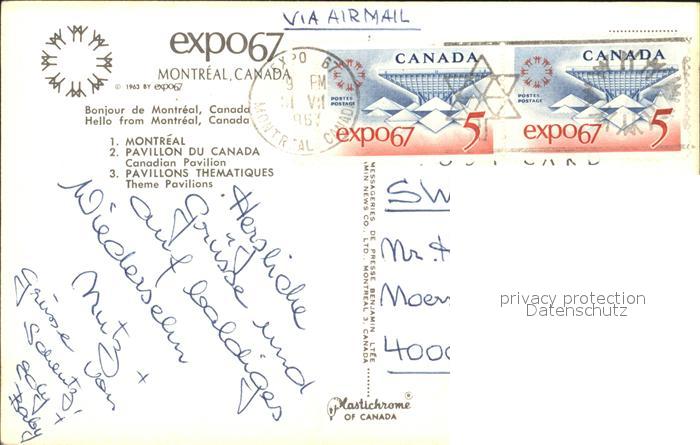 VIA AIRMAIL
expo67
MONTRÉAL, CANADA
© 1963 BY expo67
Bonjour de Montréal, Canada
Hello from Montréal, Canada
1. MONTRÉAL
2. PAVILLON DU CANADA
Canadian Pavilion
3. PAVILLONS THEMATIQUES
Theme Pavilions
EXPO 67
9 PM
VII
1967
MONTREAL CANADA
CANADA
POSTES
POSTAGE
expo67 5
CANADA
POSTES
POSTAGE
expo67 5
POST CARD
Herzliche
Grüsse und
auf baldiges
Wiedersehn
+
von
Grüsse
+
Baby
MESSAGERIES DE PRESSE BENJAMIN, LTÉE
MIN NEWS CO., LTD., MONTREAL 3, CANADA
SW
Mr. H
Moers
4000
privacy protection
Datenschutz
Plastichrome®
OF CANADA